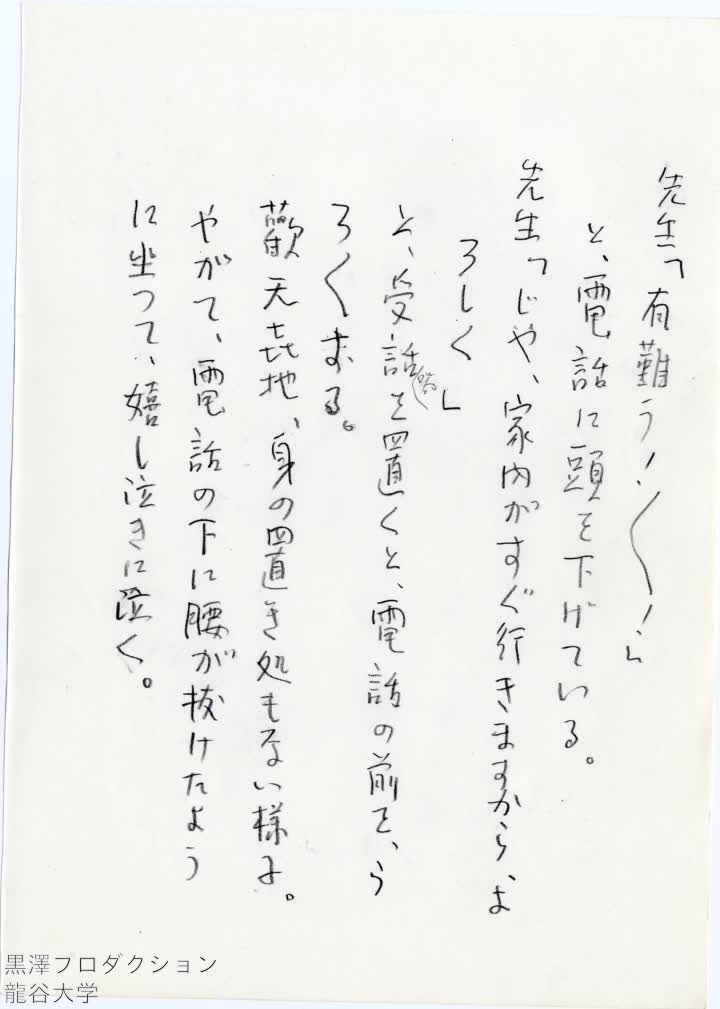 先生「有難う！〱！」
と、電話に頭を下げている。
先生「じゃ、家内がすぐ行きますから、よ
ろしく」
と、受話器を置くと、電話の前を、う
ろ〱する。
歡天喜地、身の置き処もない様子。
やがて、電話の下に腰が抜けたよう
に坐って、嬉し泣きに泣く。
黒澤プロダクション
龍谷大学